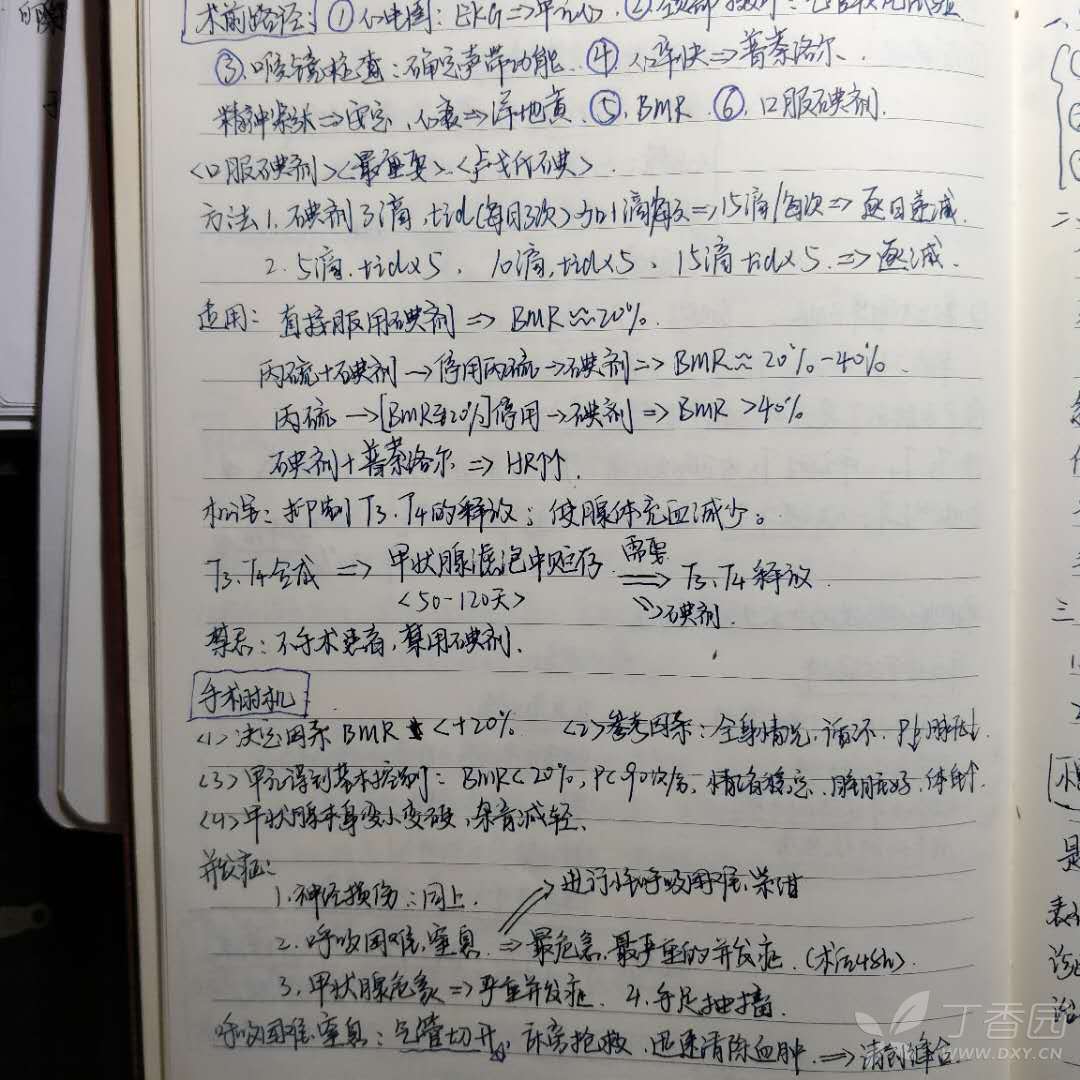 术前路径: ① 心电图: EKG ⇒ 甲亢心. ② 颈部
③ 喉镜检查: 确定声带功能. ④ 心率快 ⇒ 普萘洛尔.
精神紧张 ⇒ 安定, 心衰 ⇒ 洋地黄. ⑤, BMR. ⑥, 口服碘剂.
<口服碘剂><最重要>.<卢戈氏碘>
方法1. 碘剂3滴, tid(每日3次) 加1滴/每次 ⇒ 15滴/每次 ⇒ 逐日递减.
2. 5滴, tid×5. 10滴, tid×5. 15滴 tid×5. ⇒ 逐减.
适用: 直接服用碘剂 ⇒ BMR ≈ 20%.
丙硫+碘剂 → 停用丙硫 → 碘剂 ⇒ BMR ≈ 20%-40%.
丙硫 → [BMR 20%] 停用 → 碘剂 ⇒ BMR >40%
碘剂+普萘洛尔 ⇒ HR↑↑.
机误: 抑制T3、T4的释放; 使腺体充血减少。
T3、T4合成 ⇒ 甲状腺滤泡中贮存 需要 ⇒ T3、T4释放.
<50-120天> 碘剂.
禁忌: 不手术患者, 禁用碘剂.
手术时机
<1> 决定因素 BMR < +20% <2> 参考因素: 全身情况, 循环. P↓ 脉压↓
<3> 甲亢得到基本控制: BMR<20%, P<90次/分, 情绪稳定, 睡眠好, 体重↑.
<4> 甲状腺本身变小变硬, 杂音减轻.
并发症:
1. 神经损伤: 同上. 进行性呼吸困难、紫绀
2. 呼吸困难、窒息 ⇒ 最危急、最严重的并发症. (术后48h).
3. 甲状腺危象 ⇒ 严重并发症. 4. 手足抽搐.
呼吸困难、窒息: 气管切开, 床旁抢救, 迅速清除血肿. ⇒ 清创缝合
丁香园
WWW.DXY.CN